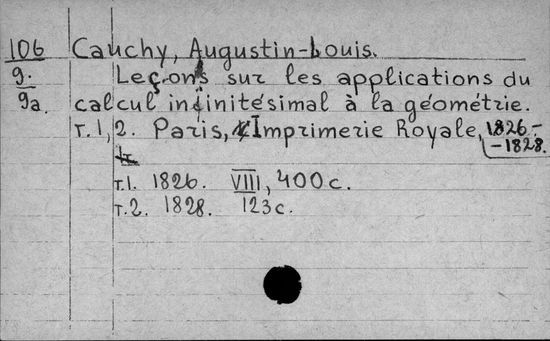 106 Cauchy, Augustin-Louis.
9. Leçons sur les applications du
9a. calcul infinitésimal à la géométrie.
т.1,2. Paris, Imprimerie Royale, 1826.-
-1828.
т.1. 1826. VIII, 400 с.
т.2. 1828. 123 с.